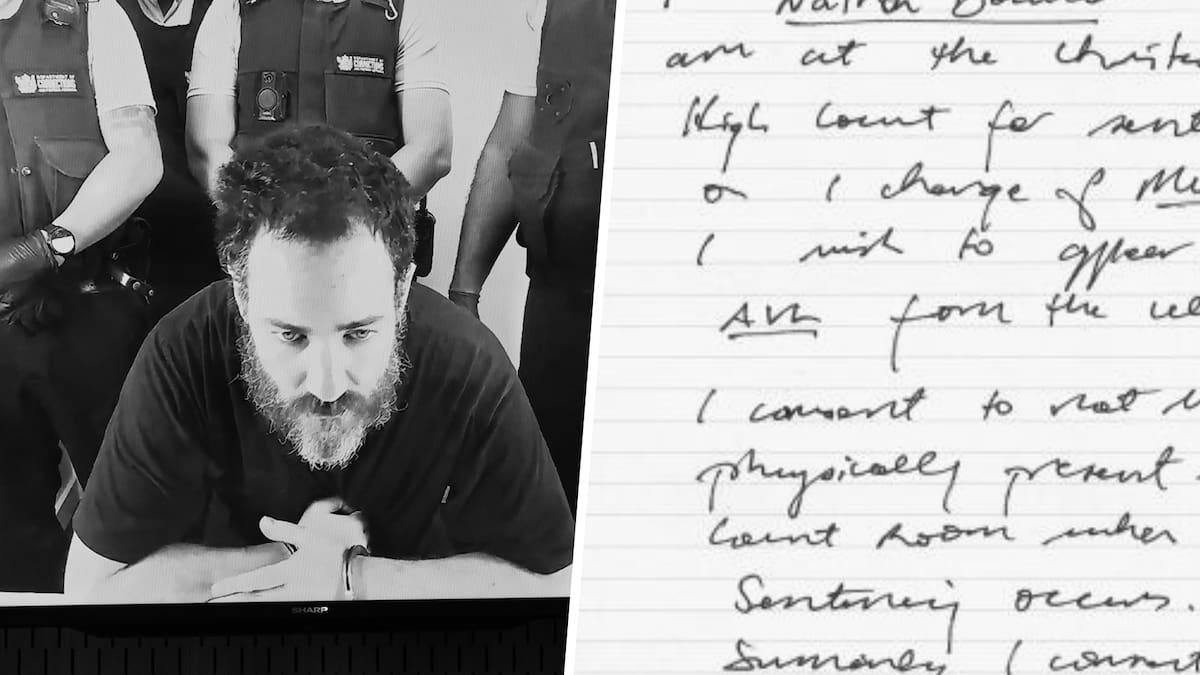 DEPARTMENT OF
CORRECTIONS
DEPARTMENT OF
CORRECTIONS
SHARP
am at the Christc
High Court for sent
on 1 charge of Mu
I wish to appear
AVL from the cel
I consent to not b
physically present
Court room when
Sentencing occurs.
Summary I consent